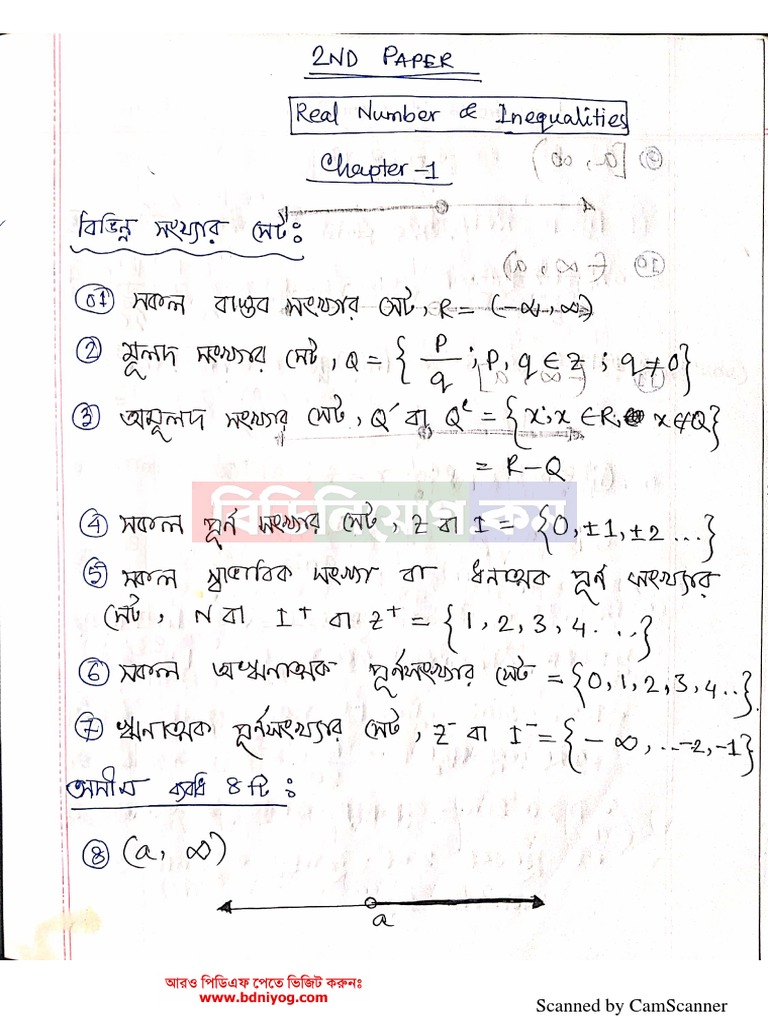 2ND PAPER
Real Number & Inequalities
Chapter-1
বিভিন্ন সংখ্যার সেট:
01 সকল বাস্তব সংখ্যার সেট, R = (-∞, ∞)
2 মূলদ সংখ্যার সেট, Q = { p/q ; p, q ∈ z ; q ≠ 0}
3 অমূলদ সংখ্যার সেট, Q′ বা Qᶜ = {x; x ∈ R, x ∉ Q}
= R - Q
বিডিনিয়োগ.কম
4 সকল পূর্ন সংখ্যার সেট, Z বা I = {0, ±1, ±2 ...}
5 সকল স্বাভাবিক সংখ্যা বা ধনাত্মক পূর্ন সংখ্যার
সেট, N বা I⁺ বা Z⁺ = {1, 2, 3, 4...}
6 সকল অঋনাত্মক পূর্নসংখ্যার সেট = {0, 1, 2, 3, 4..}
7 ঋনাত্মক পূর্নসংখ্যার সেট, Z⁻ বা I⁻ = {-∞, ...-2, -1}
অসীম ব্যবধি ৪ টি:
8 (a, ∞)
a
আরও পিডিএফ পেতে ভিজিট করুনঃ
www.bdniyog.com
Scanned by CamScanner